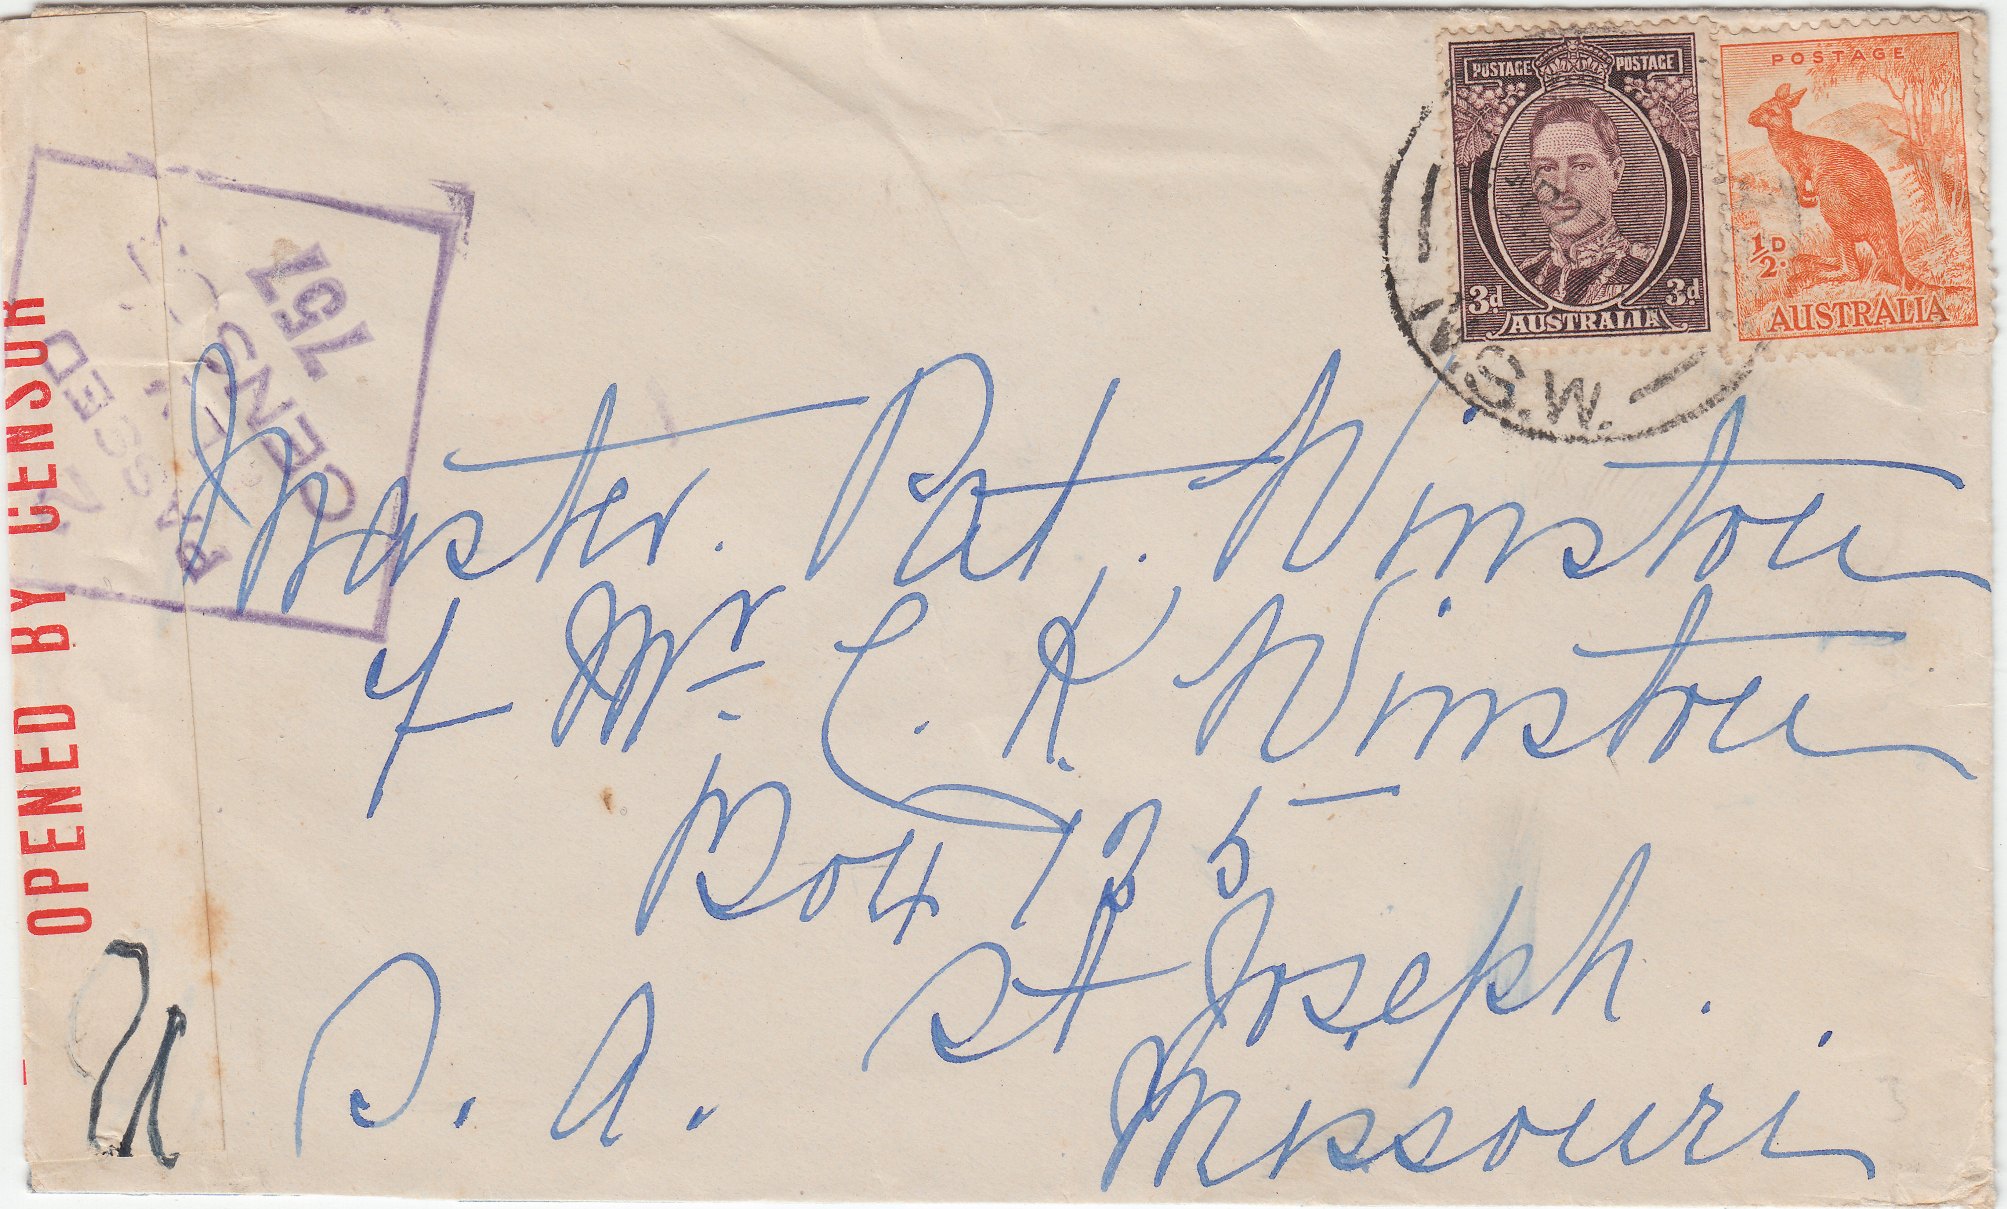 POSTAGE POSTAGE
3d 3d
AUSTRALIA
POSTAGE
½D.
AUSTRALIA
N.S.W.
OPENED BY CENSOR
PASSED
CENSOR
757
Master. Pat. Winston
℅ Mr. C. K. Winston
Box 135
St Joseph.
Missouri
U. S. A.
3